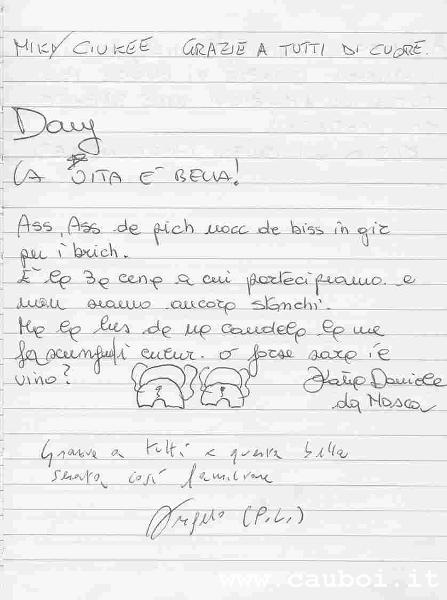 MIKY CIUKEE GRAZIE A TUTTI DI CUORE.
Dany
LA VITA E' BELLA!
Ass, Ass de pich nocc de biss in gir
per i brich.
È la 3a cena a cui partecipiamo e
non siamo ancora stanchi.
Ma la lus de na candela la me
fa
cuntur. o forse sarà il
vino?
Katia Daniele
da Mosca
Grazie a tutti x questa bella
serata così familiare
Angelo (P.L.)
www.cauboi.it